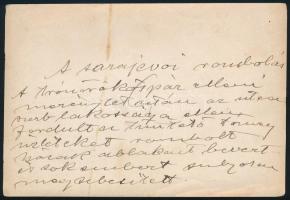 A sarajevoi rombolás
A trónörököspár elleni
merénylet után az utca
szerb lakossága ellen
fordult s a tüntető tömeg
üzleteket rombolt
ablakait bevert
és sok embert súlyosan
megsebesített.